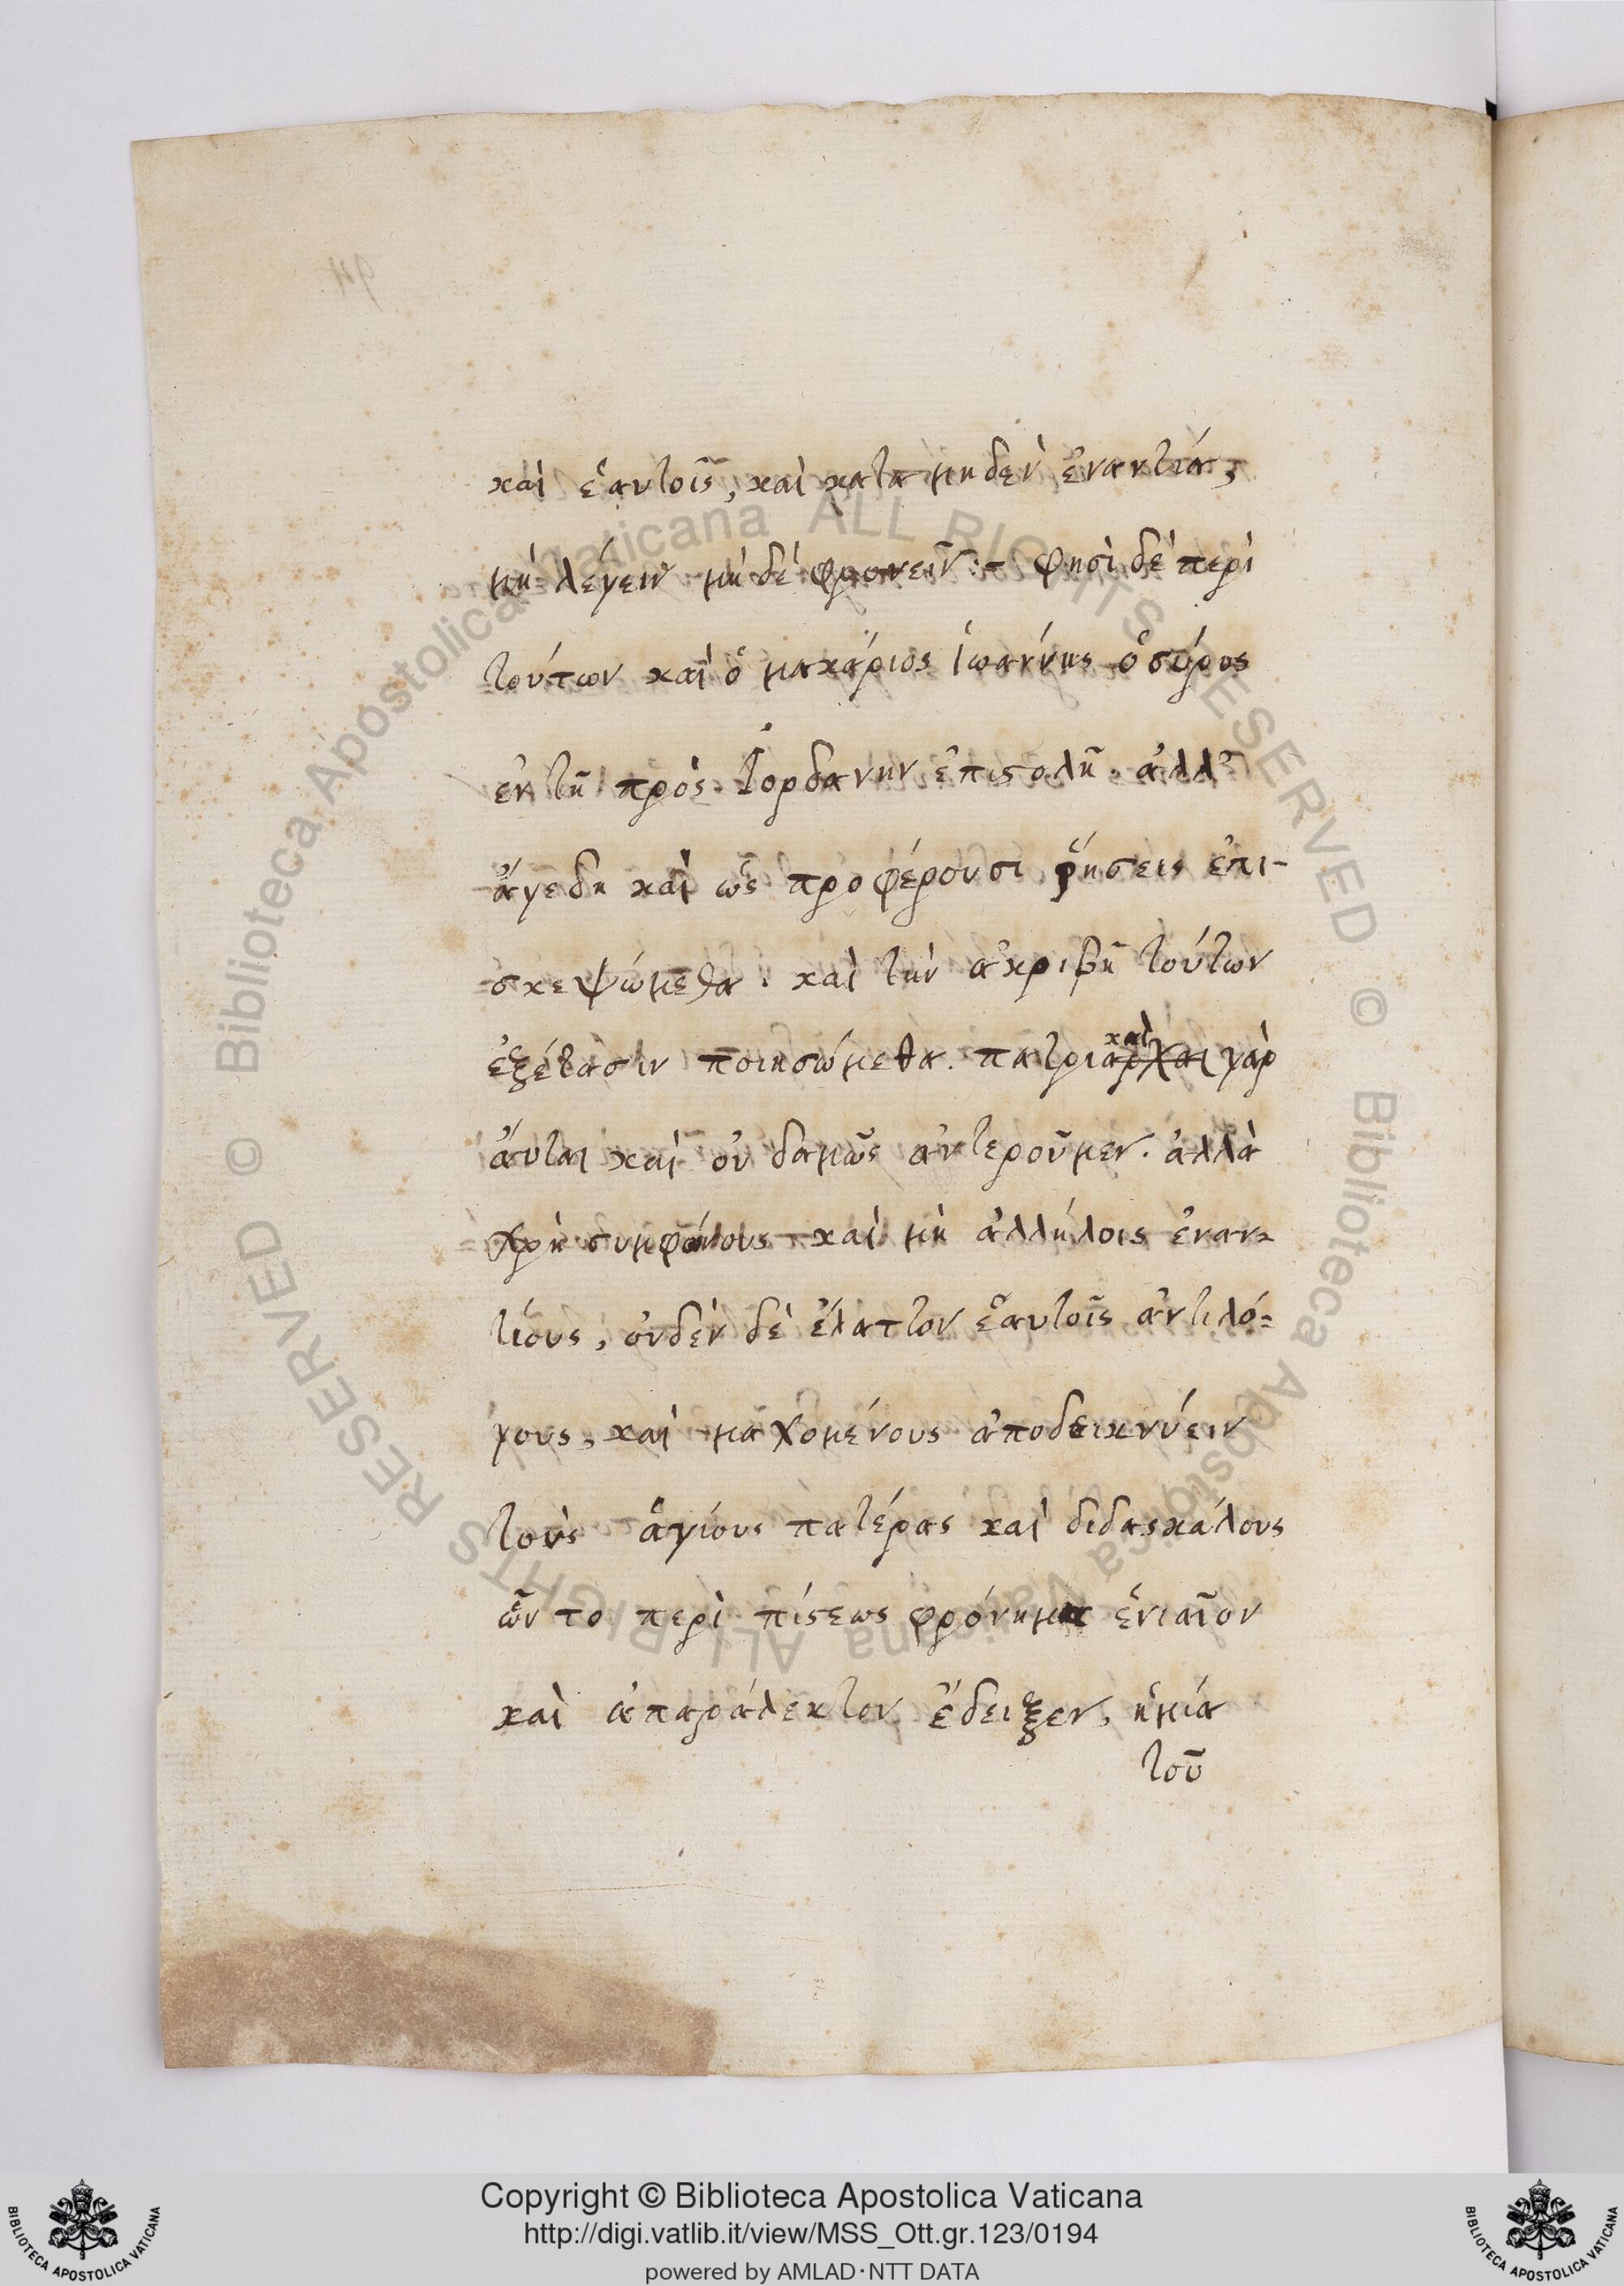 καὶ ἑαυτοῖς, καὶ κατα μηδὲν ἐναντία,
μὴ λέγειν μὴ δὲ φρονεῖν :- φησὶ δὲ περὶ
τούτων καὶ ὁ μακάριος ἰωαννης ὁ σύρος
ἐν τῆ πρὸς Ιορδανην ἐπιστολῆ. ἀλλ'
ἄγε δη καὶ ὡς προφέρουσι ῥήσεις ἐπι-
σκεψώμεθα. καὶ τὴν ἀκριβῆ τούτων
ἐξέτασιν ποιησώμεθα. πατριαρχαι καὶ γὰρ
ἅυται καὶ οὐ δαμῶς ἀντεροῦμεν. ἀλλὰ
χρὴ συμφώνους καὶ μὴ ἀλλήλοις ἐναν=
τίους, οὐδὲν δὲ ἔλαττον ἑαυτοῖς ἀντιλό=
γους, καὶ μαχομένους ἀποδεικνύειν
τοὺς ἁγίους πατέρας καὶ διδασκάλους
ὧν το περὶ πίστεως φρόνημα ἑνιαῖον
καὶ ἀπαράλεκτον ἔδειξεν, ἡ μία
τοῦ
Copyright © Biblioteca Apostolica Vaticana
http://digi.vatlib.it/view/MSS_Ott.gr.123/0194
powered by AMLAD·NTT DATA
BIBLIOTECA APOSTOLICA VATICANA
BIBLIOTECA APOSTOLICA VATICANA
© Biblioteca Apostolica Vaticana ALL RIGHTS RESERVED © Biblioteca Apostolica Vaticana ALL RIGHTS RESERVED